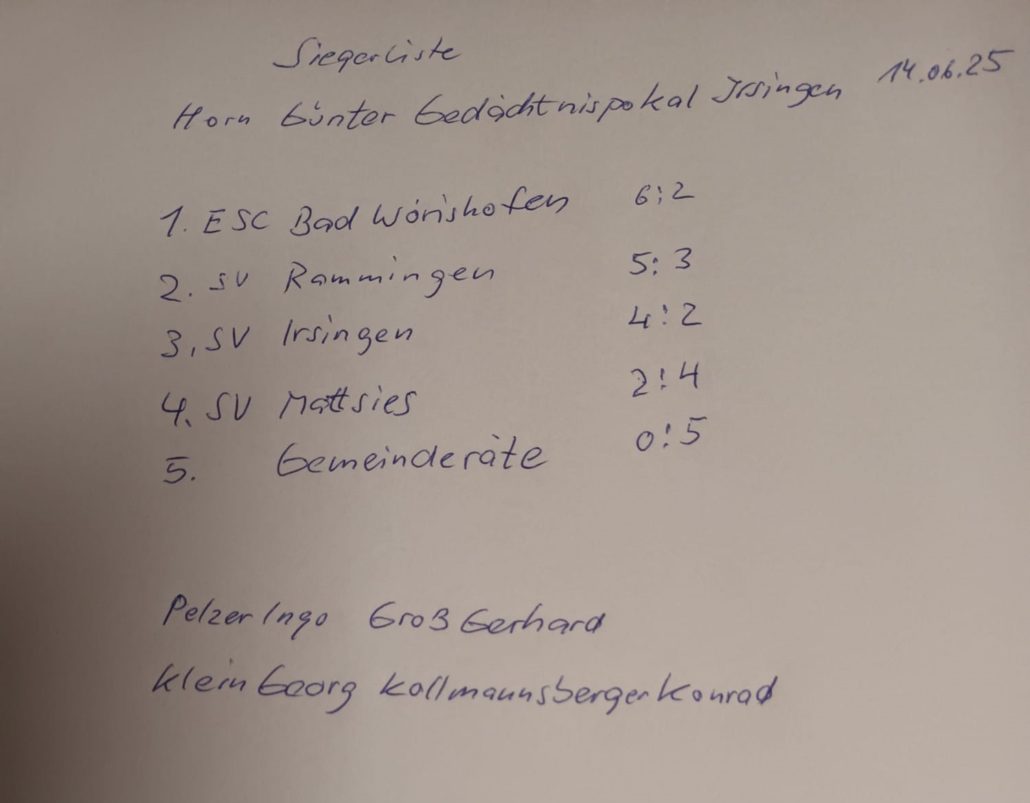 Siegerliste
Horn Günter Gedächtnispokal Irsingen 14.06.25
1. ESC Bad Wörishofen 6:2
2. SV Rammingen 5:3
3, SV Irsingen 4:2
4. SV Mattsies 2:4
5. Gemeinderäte 0:5
Pelzer Ingo Groß Gerhard
Klein Georg Kollmannsberger Konrad